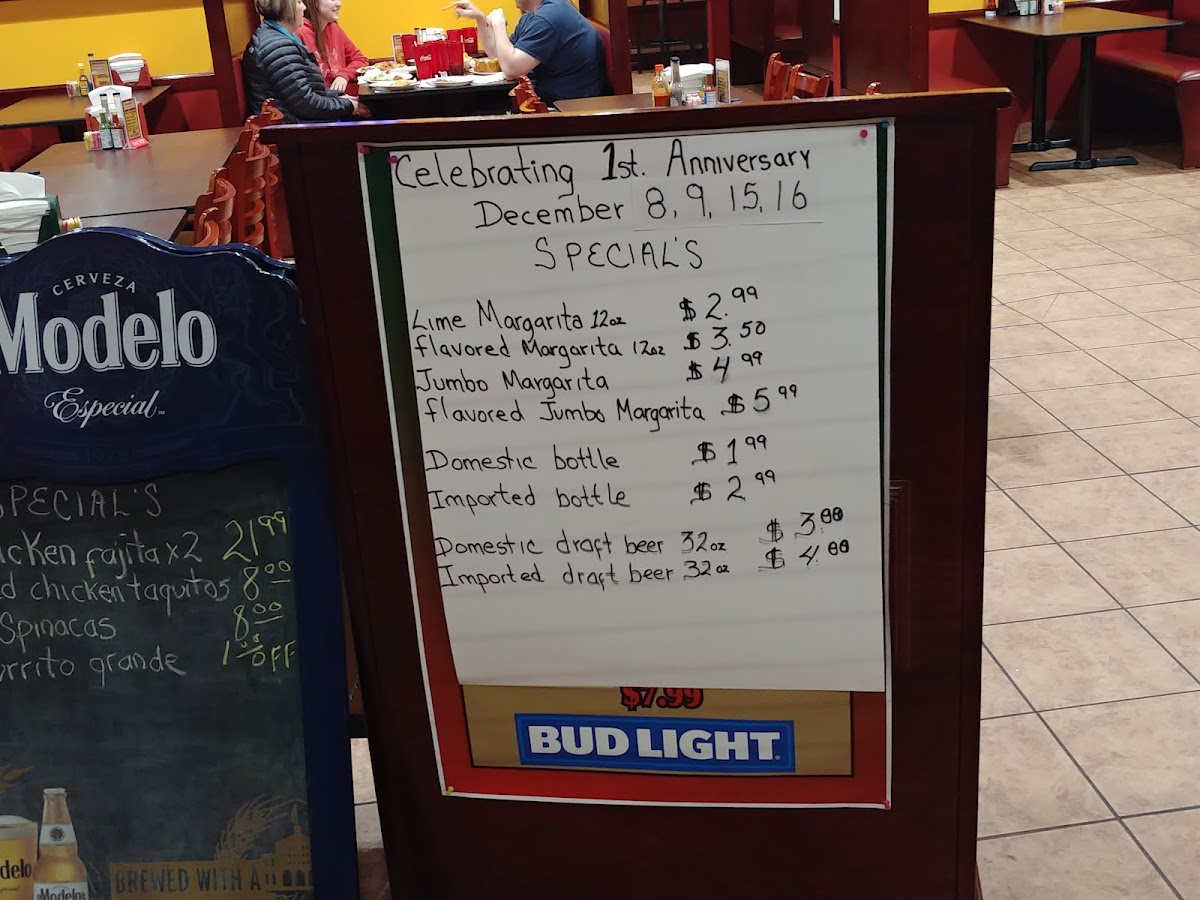 Celebrating 1st. Anniversary
December 8, 9, 15, 16
SPECIAL'S
Lime Margarita 12oz $2.99
flavored Margarita 12oz $3.50
Jumbo Margarita $4.99
flavored Jumbo Margarita $5.99
Domestic bottle $1.99
Imported bottle $2.99
Domestic draft beer 32oz $3.00
Imported draft beer 32oz $4.00
$7.99
BUD LIGHT
CERVEZA
Modelo
Especial
SPECIAL'S
fajita x2 21.99
chicken taquitos 8.00
Spinacas 8.00
grande OFF
Modelo
BREWED WITH A
Coca-Cola